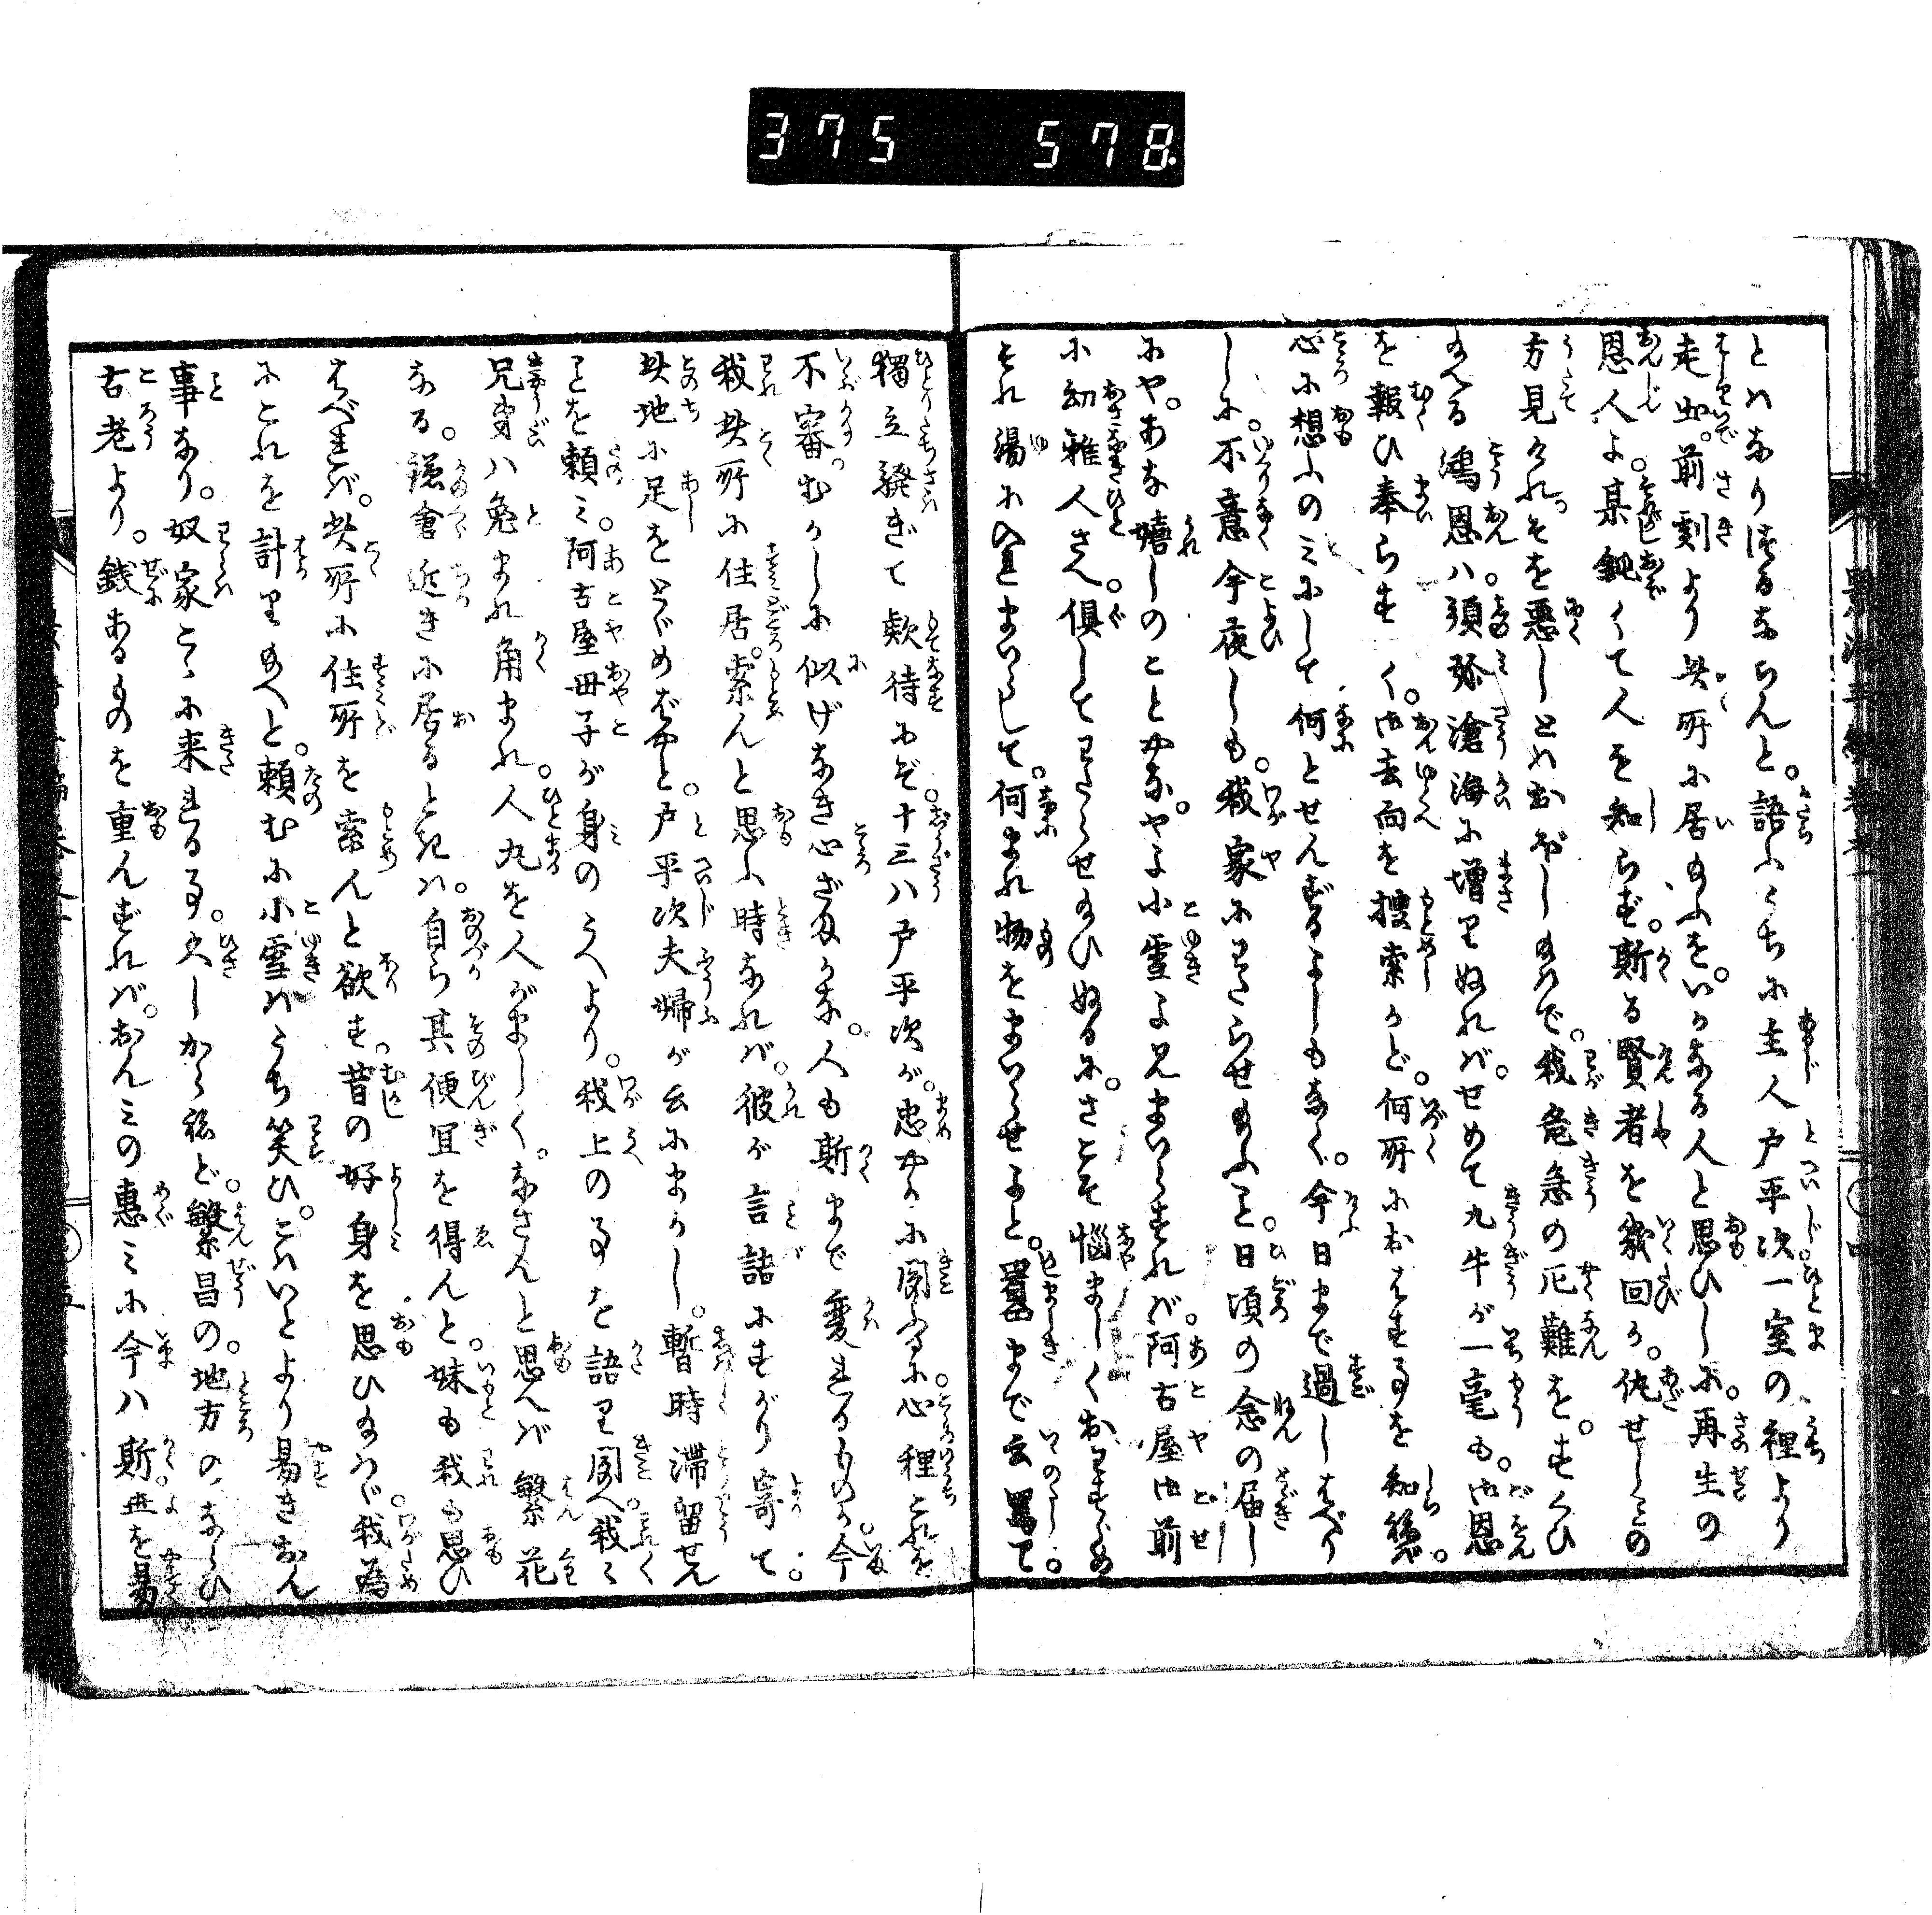 375 578
とハなりはべるならんと。語ふうちに主人戸平次一室の裡より
走出。前刻より此所に居給ふを。いかなる人と思ひしに。再生の
恩人よ。某鈍くて人を知らず。斯る賢者を幾回か。仇せしとの
方見けれそを悪しとハおぼし給はで。我危急の厄難を。すくひ
給へる鴻恩ハ須弥滄海に増りぬれバ。せめて九牛が一毫も。御恩
を報ひ奉らまく。御去向を捜索しかど。何所におはする事を知らねば。
心に想ふのミにして何とせんずるよしもなく。今日まで過しはべり
しに。不意今夜しも。我家にわたらせ給ふこと。日頃の念の届し
にや。あな嬉しのことやな。やよ小雪よ兄まいらすれバ。阿古屋御前
に幼稚人さへ。倶してわたらせ給ひぬるに。さこそ悩ましくおわすらめ
それ湯に入まいらして。何まれ物をまいらせよと。囂まで云罵て
独立騒ぎて欵待にぞ。十三ハ戸平次が。忠やかに聞ゆるに心裡これを
不審むかしに似げなき心ざまかな。人も斯まで変れるものか。今
我此所に住居。索んと思ふ時なれバ。彼が言語にすがり寄て。
此地に足をとゞめばやと。戸平次夫婦が云にまかし。暫時滞留せん
ことを頼ミ。阿古屋母子が身のうへより。我上の事を語り聞へ我々
兄弟ハ兎まれ角まれ。人丸を人がましく。なさんと思へバ繁花
なる。鎌倉近きに居るときハ。自ら其便宜を得んと。妹も我も思ひ
はべれバ。此所に住所を索んと欲す。昔の好身を思ひ給はゞ。我為
にこれを計り給へと。頼むに小雪ハうち笑ひ。こハいとより易きおん
事なり。奴家こゝに来れる事。久しからねど。繁昌の。地方のならひ
古老より。銭あるものを重んずれバ。おんミの恵ミに今ハ斯。世を易